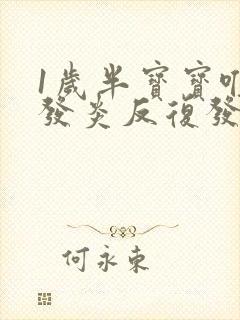 1歲半寶寶
發炎反復發
何永東